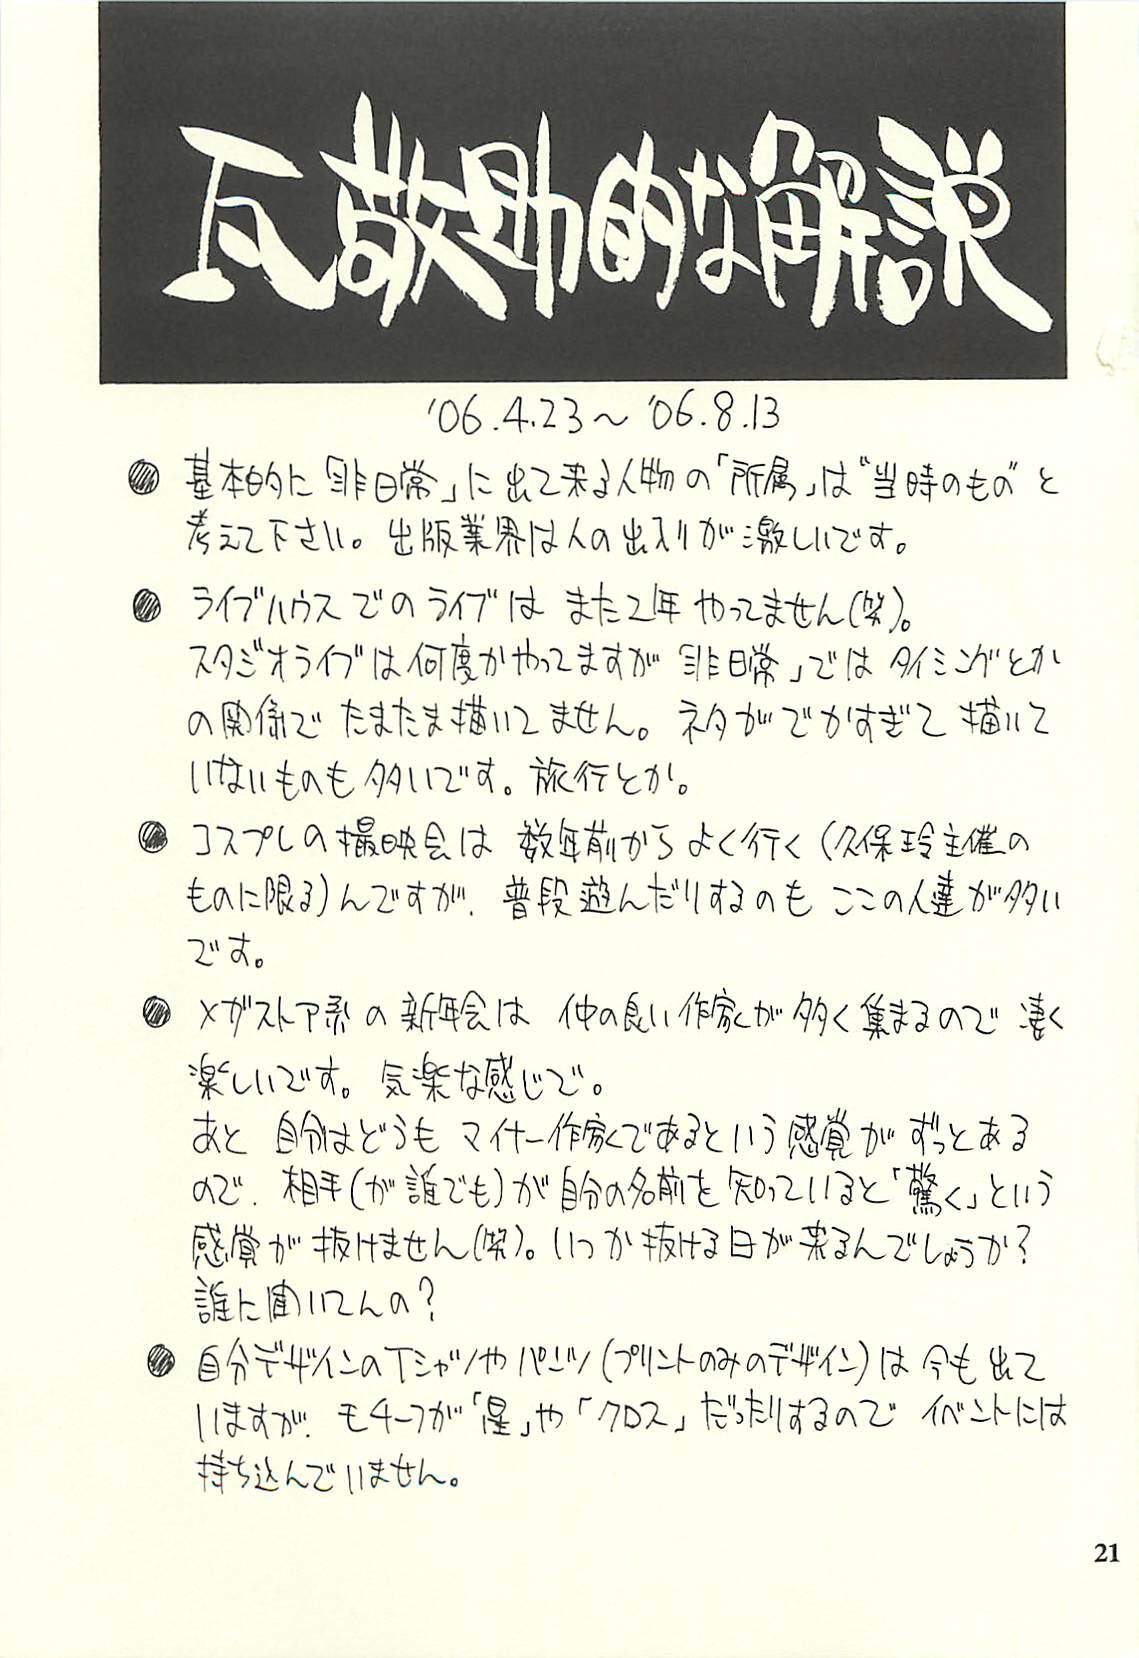 瓦敬助的な解説
'06.4.23〜'06.8.13
●基本的に「非日常」に出て来る人物の「所属」は“当時のもの”と
考えて下さい。出版業界は人の出入りが激しいです。
●ライブハウスでのライブはまた2年やってません(笑)。
スタジオライブは何度かやってますが「非日常」ではタイミングとか
の関係でたまたま描いてません。ネタがでかすぎて描いて
いないものも多いです。旅行とか。
●コスプレの撮映会は数年前からよく行く(久保玲主催の
ものに限る)んですが、普段遊んだりするのもここの人達が多い
です。
●メガストア系の新年会は仲の良い作家が多く集まるので凄く
楽しいです。気楽な感じで。
あと自分はどうもマイナー作家であるという感覚がずっとある
ので、相手(が誰でも)が自分の名前を知っていると「驚く」という
感覚が抜けません(笑)。いつか抜ける日が来るんでしょうか?
誰に聞いてんの?
●自分デザインのTシャツやパンツ(プリントのみのデザイン)は今も出て
いますが、モチーフが「星」や「クロス」だったりするのでイベントには
持ち込んでいません。
21